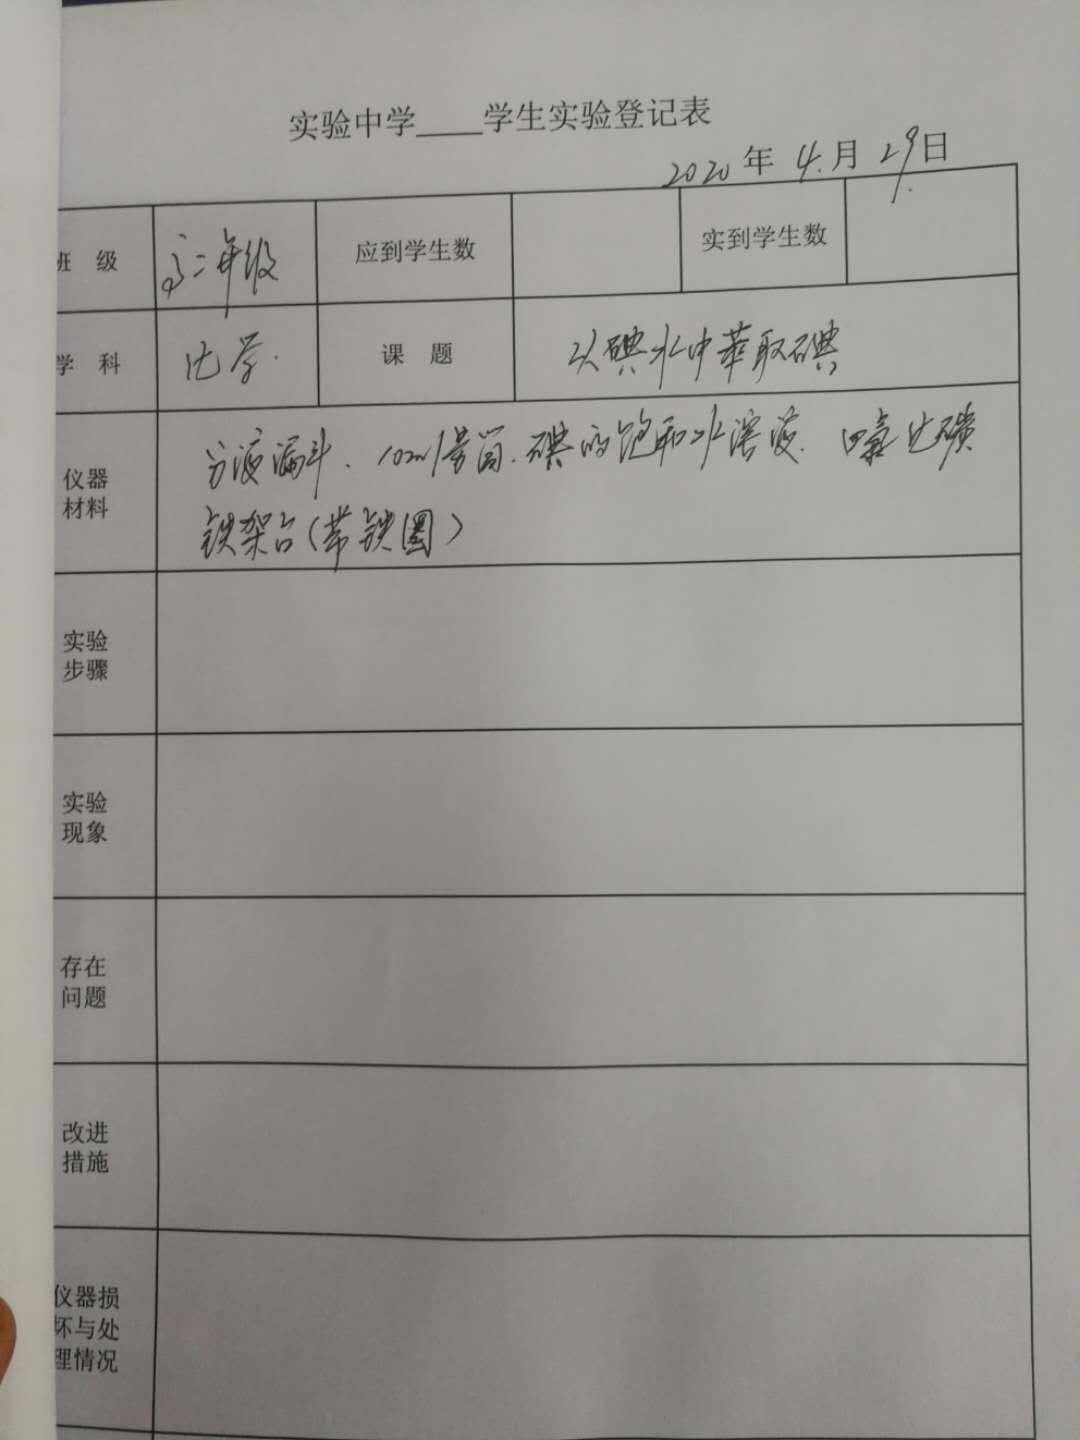 实验中学____学生实验登记表
2020年4.月29.日
班 级 高二年级 应到学生数 实到学生数
学 科 化学. 课 题 从碘水中萃取碘
仪器
材料
分液漏斗、10ml量筒.碘的饱和水溶液.四氯化碳
铁架台(带铁圈)
实验
步骤
实验
现象
存在
问题
改进
措施
仪器损
坏与处
理情况